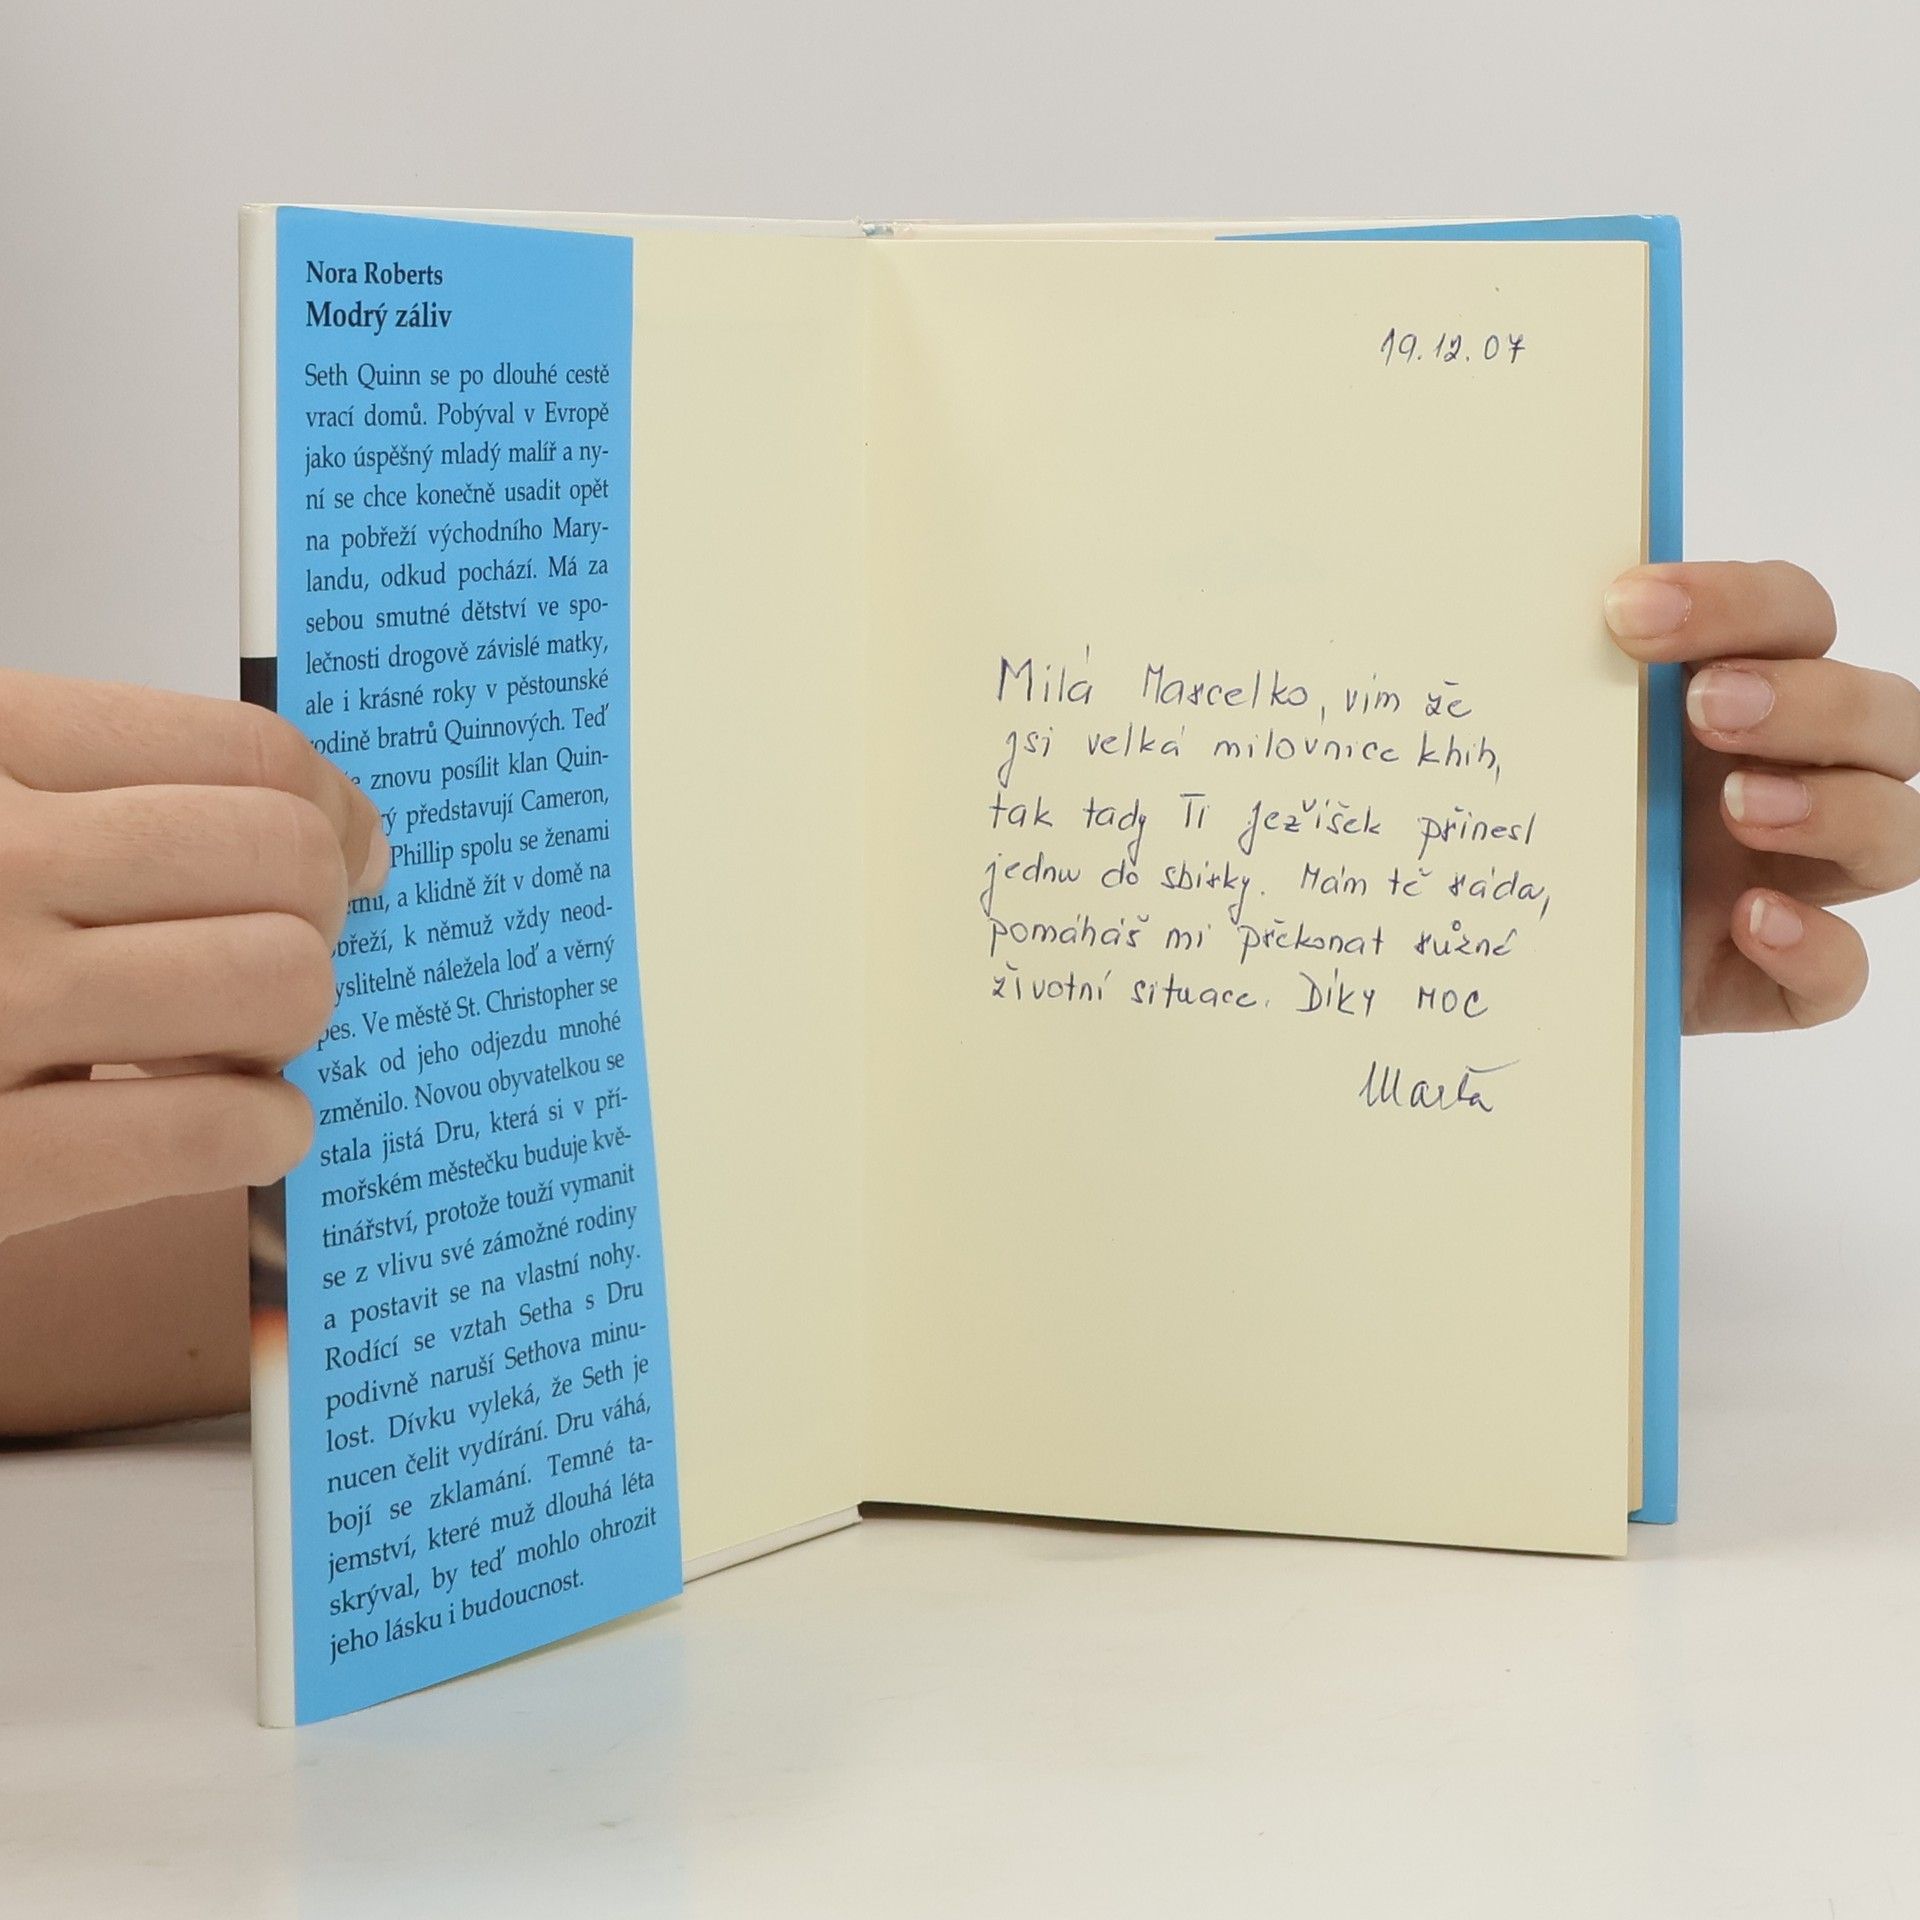 Nora Roberts
Modrý záliv
Seth Quinn se po dlouhé cestě
vrací domů. Pobýval v Evropě
jako úspěšný mladý malíř a ny-
ní se chce konečně usadit opět
na pobřeží východního Mary-
landu, odkud pochází. Má za
sebou smutné dětství ve spo-
lečnosti drogově závislé matky,
ale i krásné roky v pěstounské
odině bratrů Quinnových. Teď
znovu posílit klan Quin-
ý představují Cameron,
Phillip spolu se ženami
, a klidně žít v domě na
břeží, k němuž vždy neod-
yslitelně náležela loď a věrný
pes. Ve městě St. Christopher se
však od jeho odjezdu mnohé
změnilo. Novou obyvatelkou se
stala jistá Dru, která si v pří-
mořském městečku buduje kvě-
tinářství, protože touží vymanit
se z vlivu své zámožné rodiny
a postavit se na vlastní nohy.
Rodící se vztah Setha s Dru
podivně naruší Sethova minu-
lost. Dívku vyleká, že Seth je
nucen čelit vydírání. Dru váhá,
bojí se zklamání. Temné ta-
jemství, které muž dlouhá léta
skrýval, by teď mohlo ohrozit
jeho lásku i budoucnost.
19.12.07
Milá Marcelko, vim že
jsi velká milovnice knih,
tak tady Ti Ježíšek přinesl
jednu do sbírky. Mám tě ráda,
pomáháš mi překonat různé
životní situace. Díky MOC
Marta